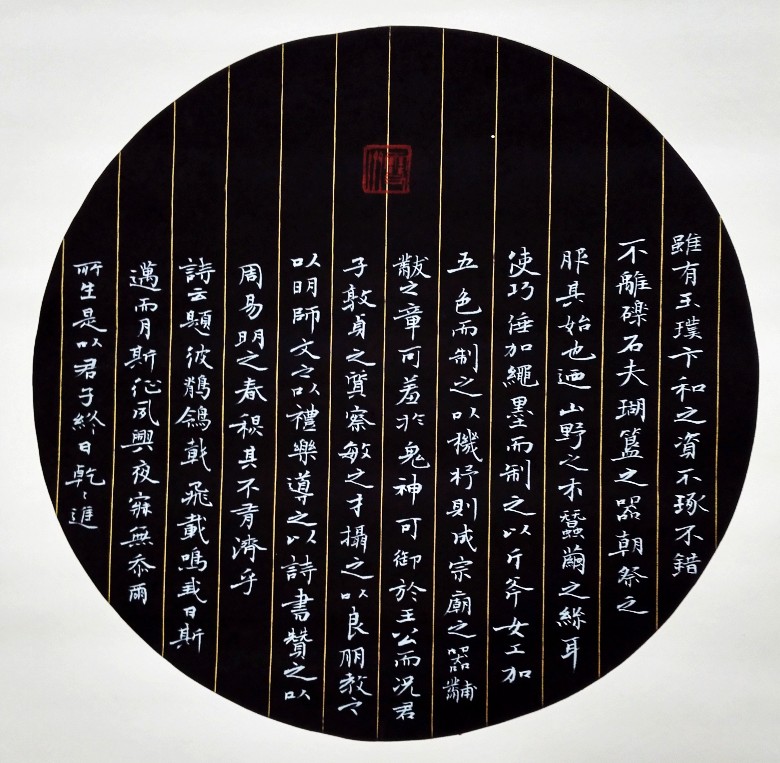 雖有玉璞卞和之資不琢不錯
不離礫石夫瑚簋之器朝祭之
服其始也迺山野之木蠶繭之絲耳
使巧倕加繩墨而制之以斤斧女工加
五色而制之以機杼則成宗廟之器黼
黻之章可羞於鬼神可御於王公而況君
子敦貞之質察敏之才攝之以良朋教之
以明師文之以禮樂導之以詩書贊之以
周易明之春秋其不有濟乎
詩云題彼鶺鴒載飛載鳴我日斯
邁而月斯征夙興夜寐無忝爾
所生是以君子終日乾〻進